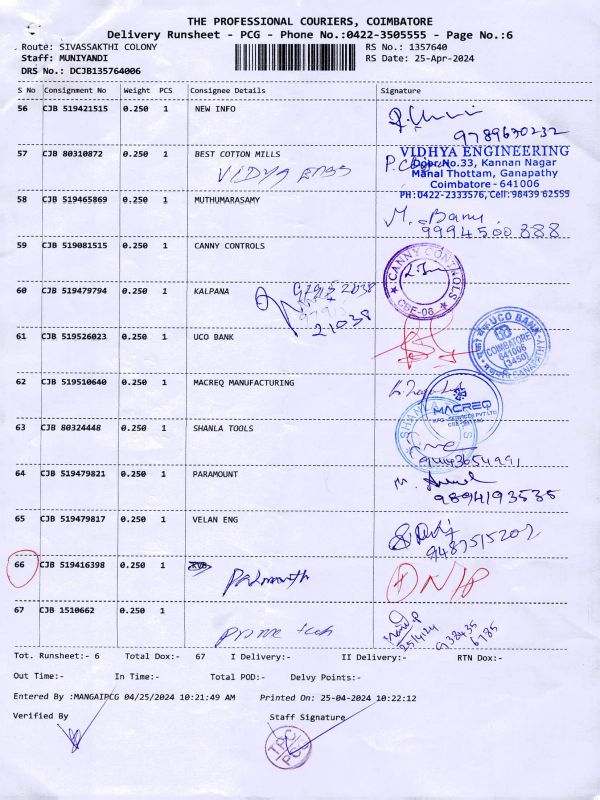 THE PROFESSIONAL COURIERS, COIMBATORE
Delivery Runsheet - PCG - Phone No.:0422-3505555 - Page No.:6
Route: SIVASSAKTHI COLONY RS No.: 1357640
Staff: MUNIYANDI RS Date: 25-Apr-2024
DRS No.: DCJB135764006
S No Consignment No Weight PCS Consignee Details Signature
56 CJB 519421515 0.250 1 NEW INFO
9789630232
57 CJB 80310872 0.250 1 BEST COTTON MILLS
VIDYA ENGG
VIDHYA ENGINEERING
Door.No.33, Kannan Nagar
Manal Thottam, Ganapathy
Coimbatore - 641006
PH:0422-2333576, Cell: 98439 62555
58 CJB 519465869 0.250 1 MUTHUMARASAMY
9994500888
59 CJB 519081515 0.250 1 CANNY CONTROLS
CANNY CONTROLS
CBE-06
60 CJB 519479794 0.250 1 KALPANA
21038
61 CJB 519526023 0.250 1 UCO BANK
UCO BANK
COIMBATORE
641006
(3450)
62 CJB 519510640 0.250 1 MACREQ MANUFACTURING
MACREQ
63 CJB 80324448 0.250 1 SHANLA TOOLS
64 CJB 519479821 0.250 1 PARAMOUNT
9894193535
65 CJB 519479817 0.250 1 VELAN ENG
9487515202
66 CJB 519416398 0.250 1
67 CJB 1510662 0.250 1 Prime tech
25/4/24
Tot. Runsheet:- 6 Total Dox:- 67 I Delivery:- II Delivery:- RTN Dox:-
Out Time:- In Time:- Total POD:- Delvy Points:-
Entered By :MANGAIPCG 04/25/2024 10:21:49 AM Printed On: 25-04-2024 10:22:12
Verified By Staff Signature
TPC
PCG